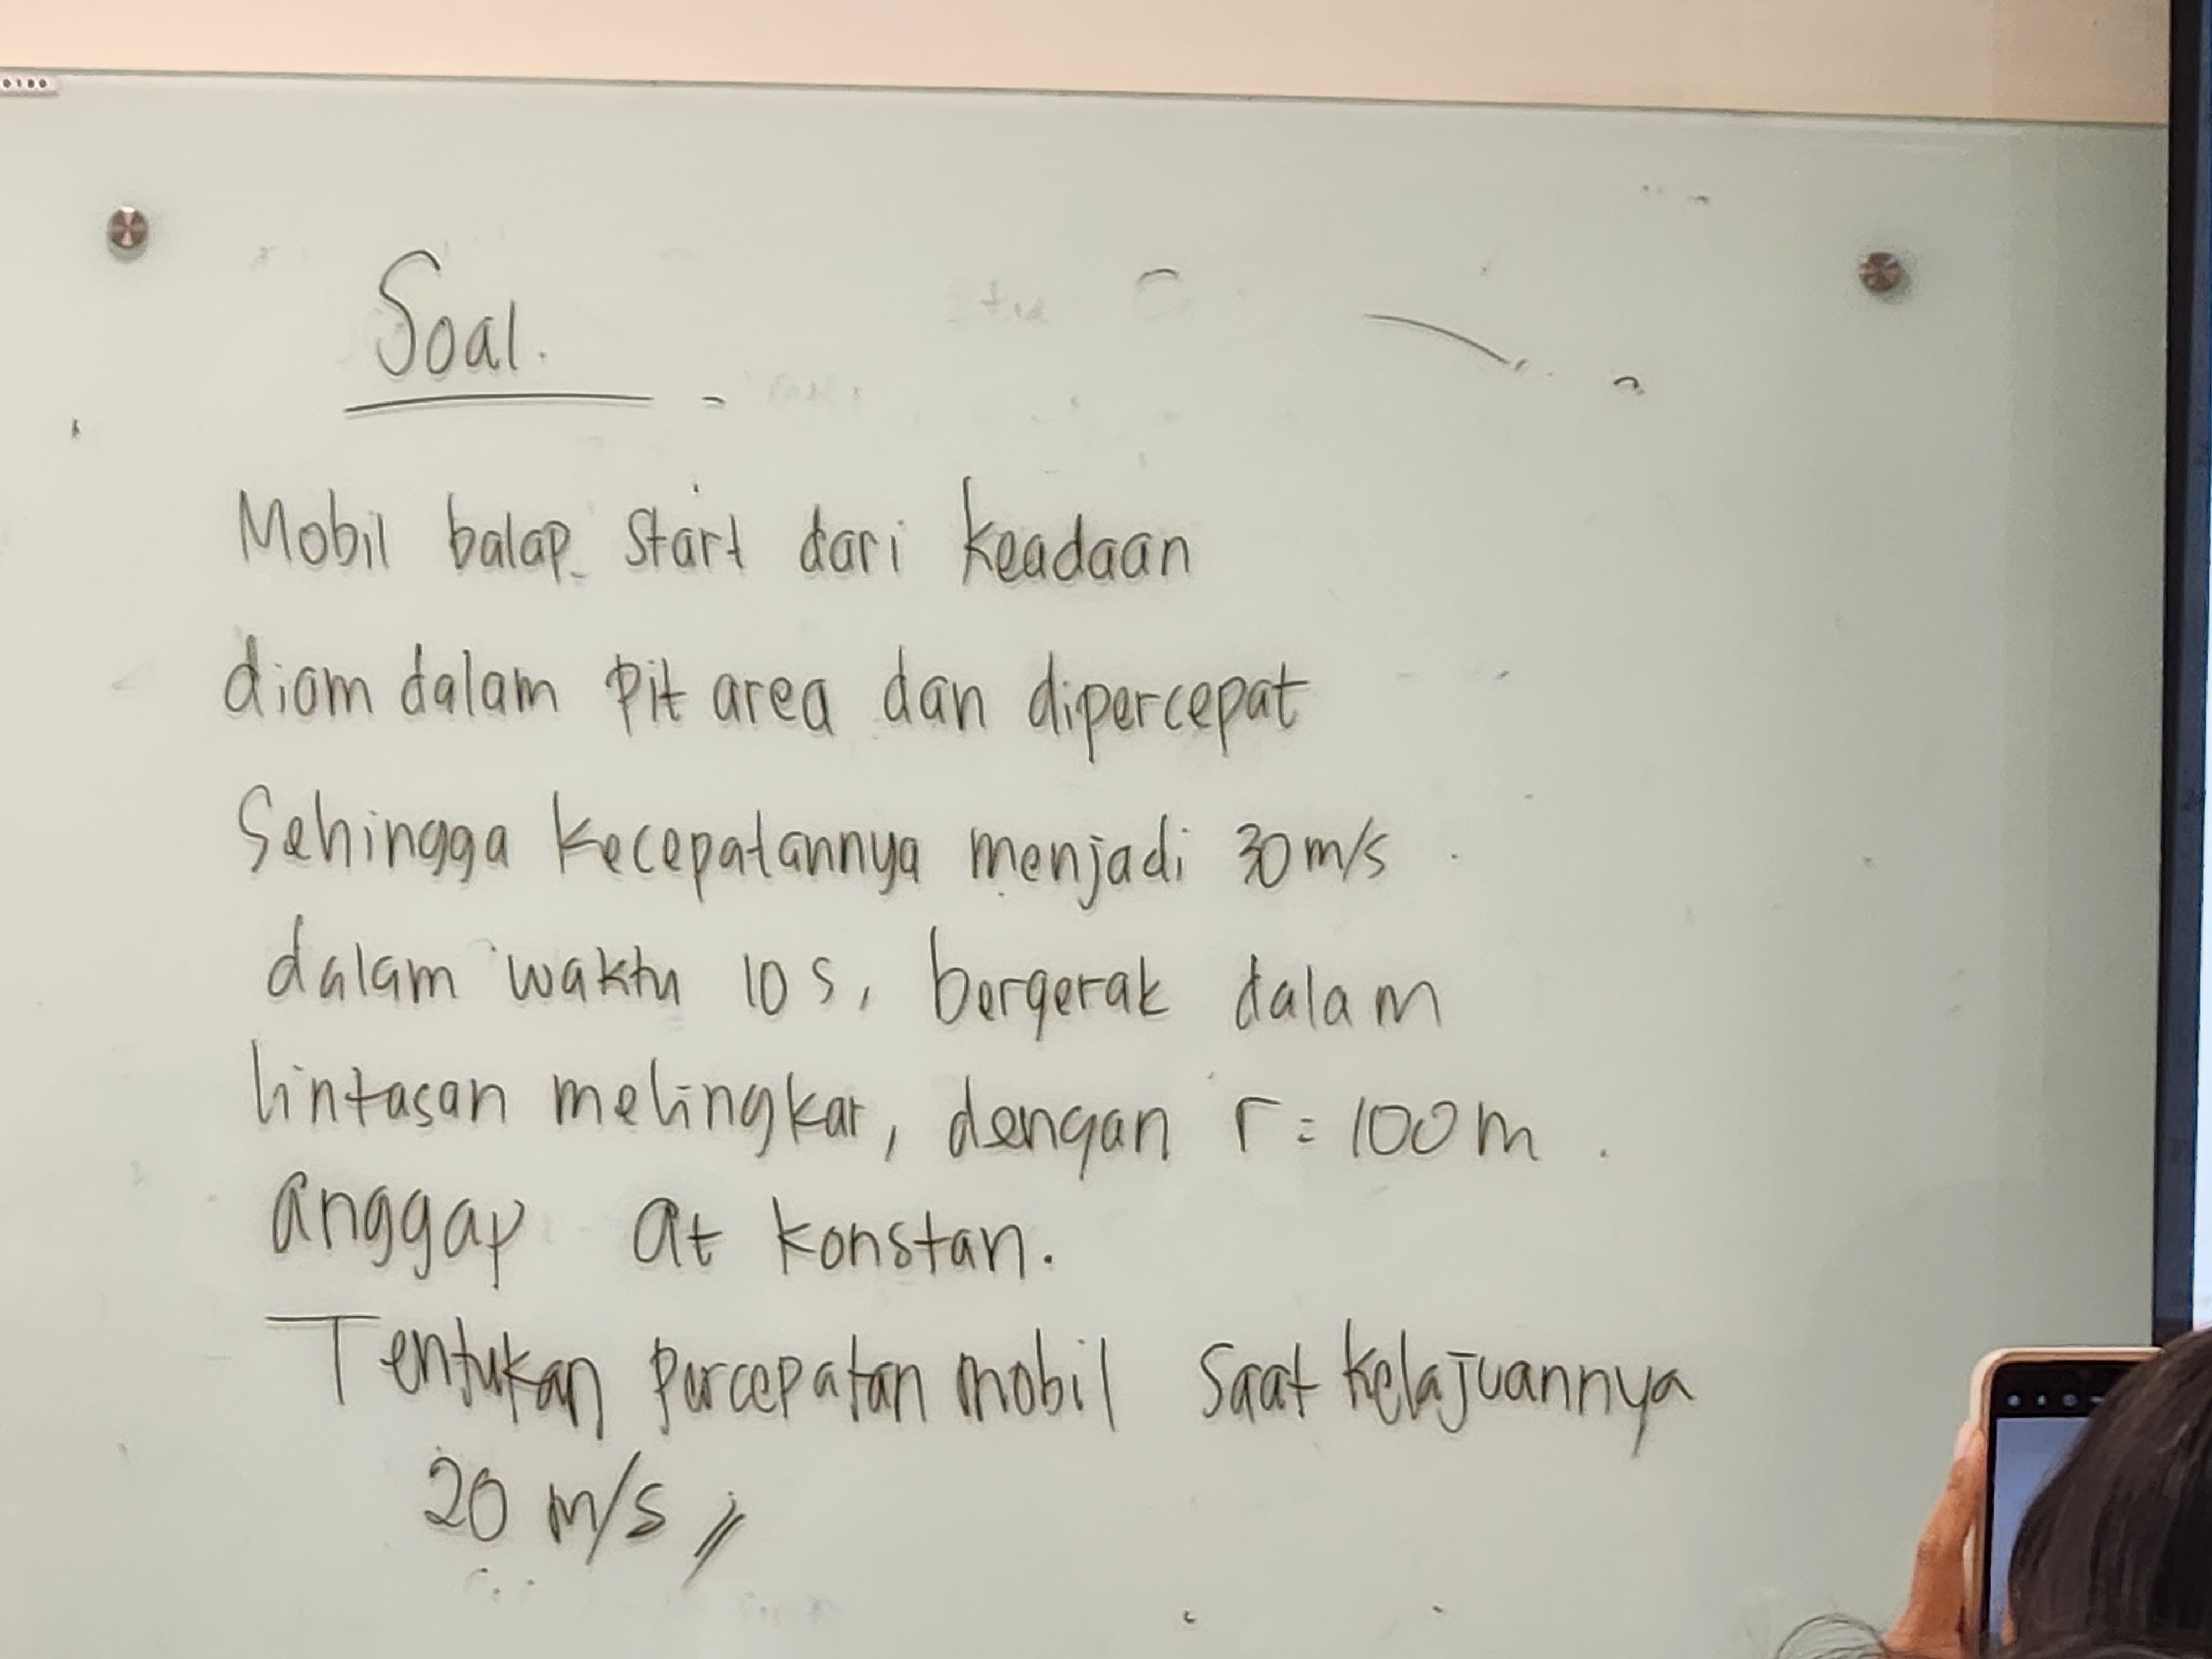 Soal.
Mobil balap start dari keadaan
diam dalam pit area dan dipercepat
Sehingga kecepatannya menjadi 30 m/s
dalam waktu 10 s, bergerak dalam
lintasan melingkar, dengan r = 100 m.
anggap at konstan.
Tentukan percepatan mobil saat kelajuannya
20 m/s //